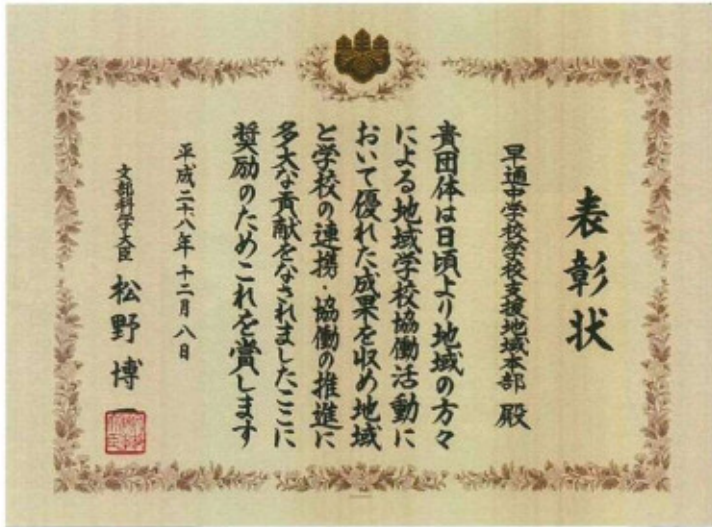 表彰状
早通中学校学校支援地域本部 殿
貴団体は日頃より地域の方々
による地域学校協働活動に
おいて優れた成果を収め地域
と学校の連携・協働の推進に
多大な貢献をなされましたここに
奨励のためこれを賞します
平成二十八年十二月八日
文部科学大臣 松野博一